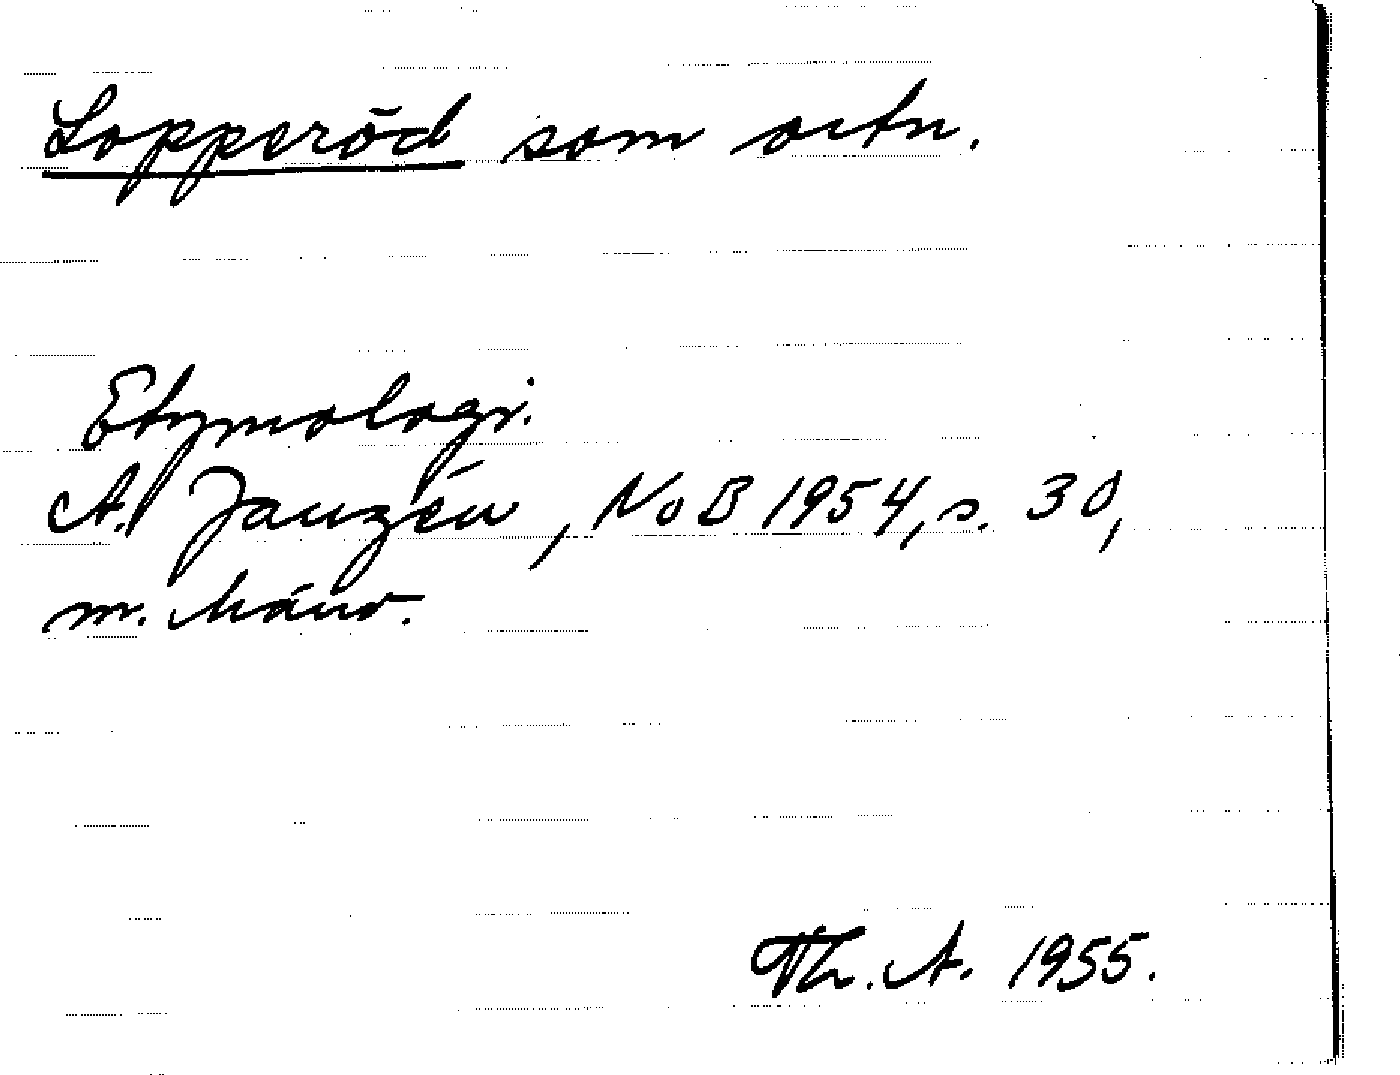 Lopperöd som ortn.
Etymologi.
A. Janzén, NoB 1954, s. 30,
m. hänv.
Th. A. 1955.